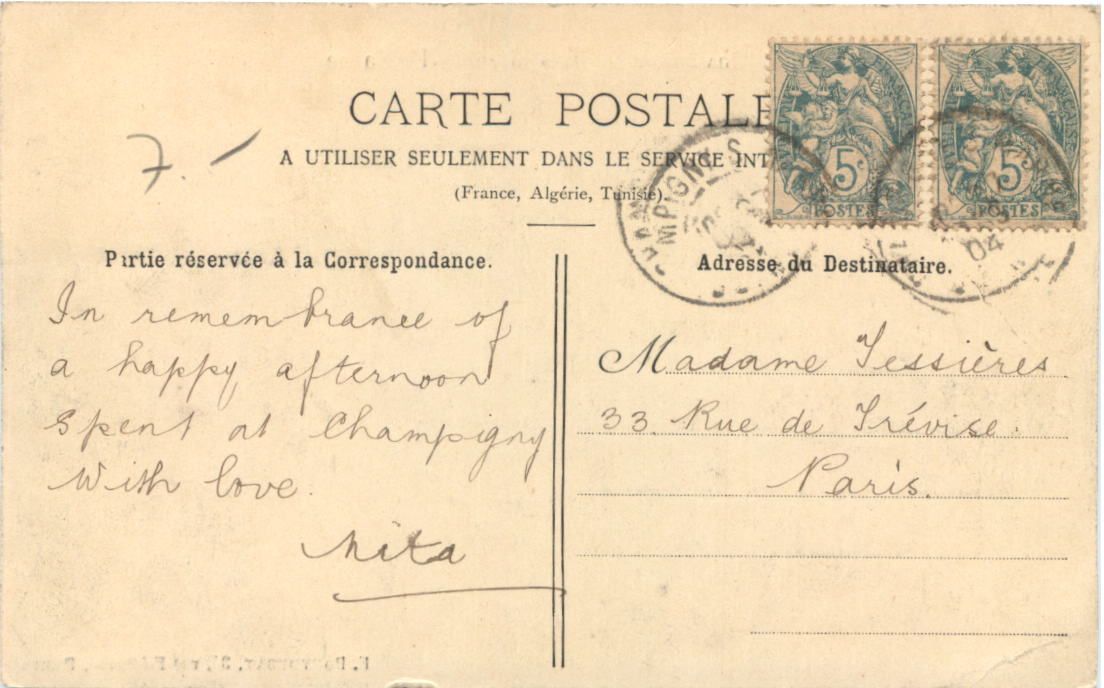 CARTE POSTALE
A UTILISER SEULEMENT DANS LE SERVICE INT
(France, Algérie, Tunisie)
7.-
5c
POSTES
5c
POSTES
04
Partie réservée à la Correspondance.
In remembrance of
a happy afternoon
spent at Champigny
With love.
Nita
Adresse du Destinataire.
Madame Tessières.
33. Rue de Trévise.
Paris.